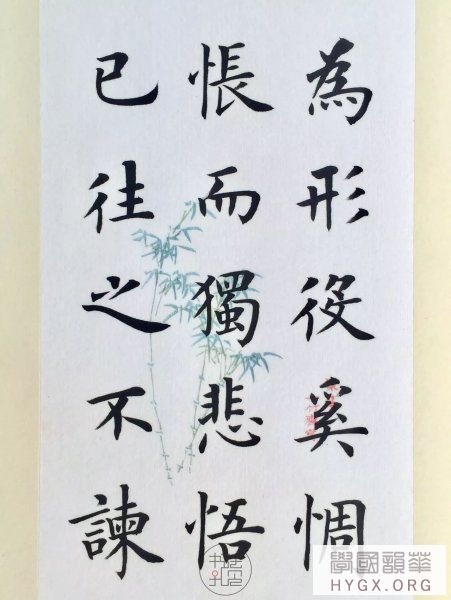 為形役奚惆
悵而獨悲悟
已往之不諫
華韻國學
HYGX.ORG